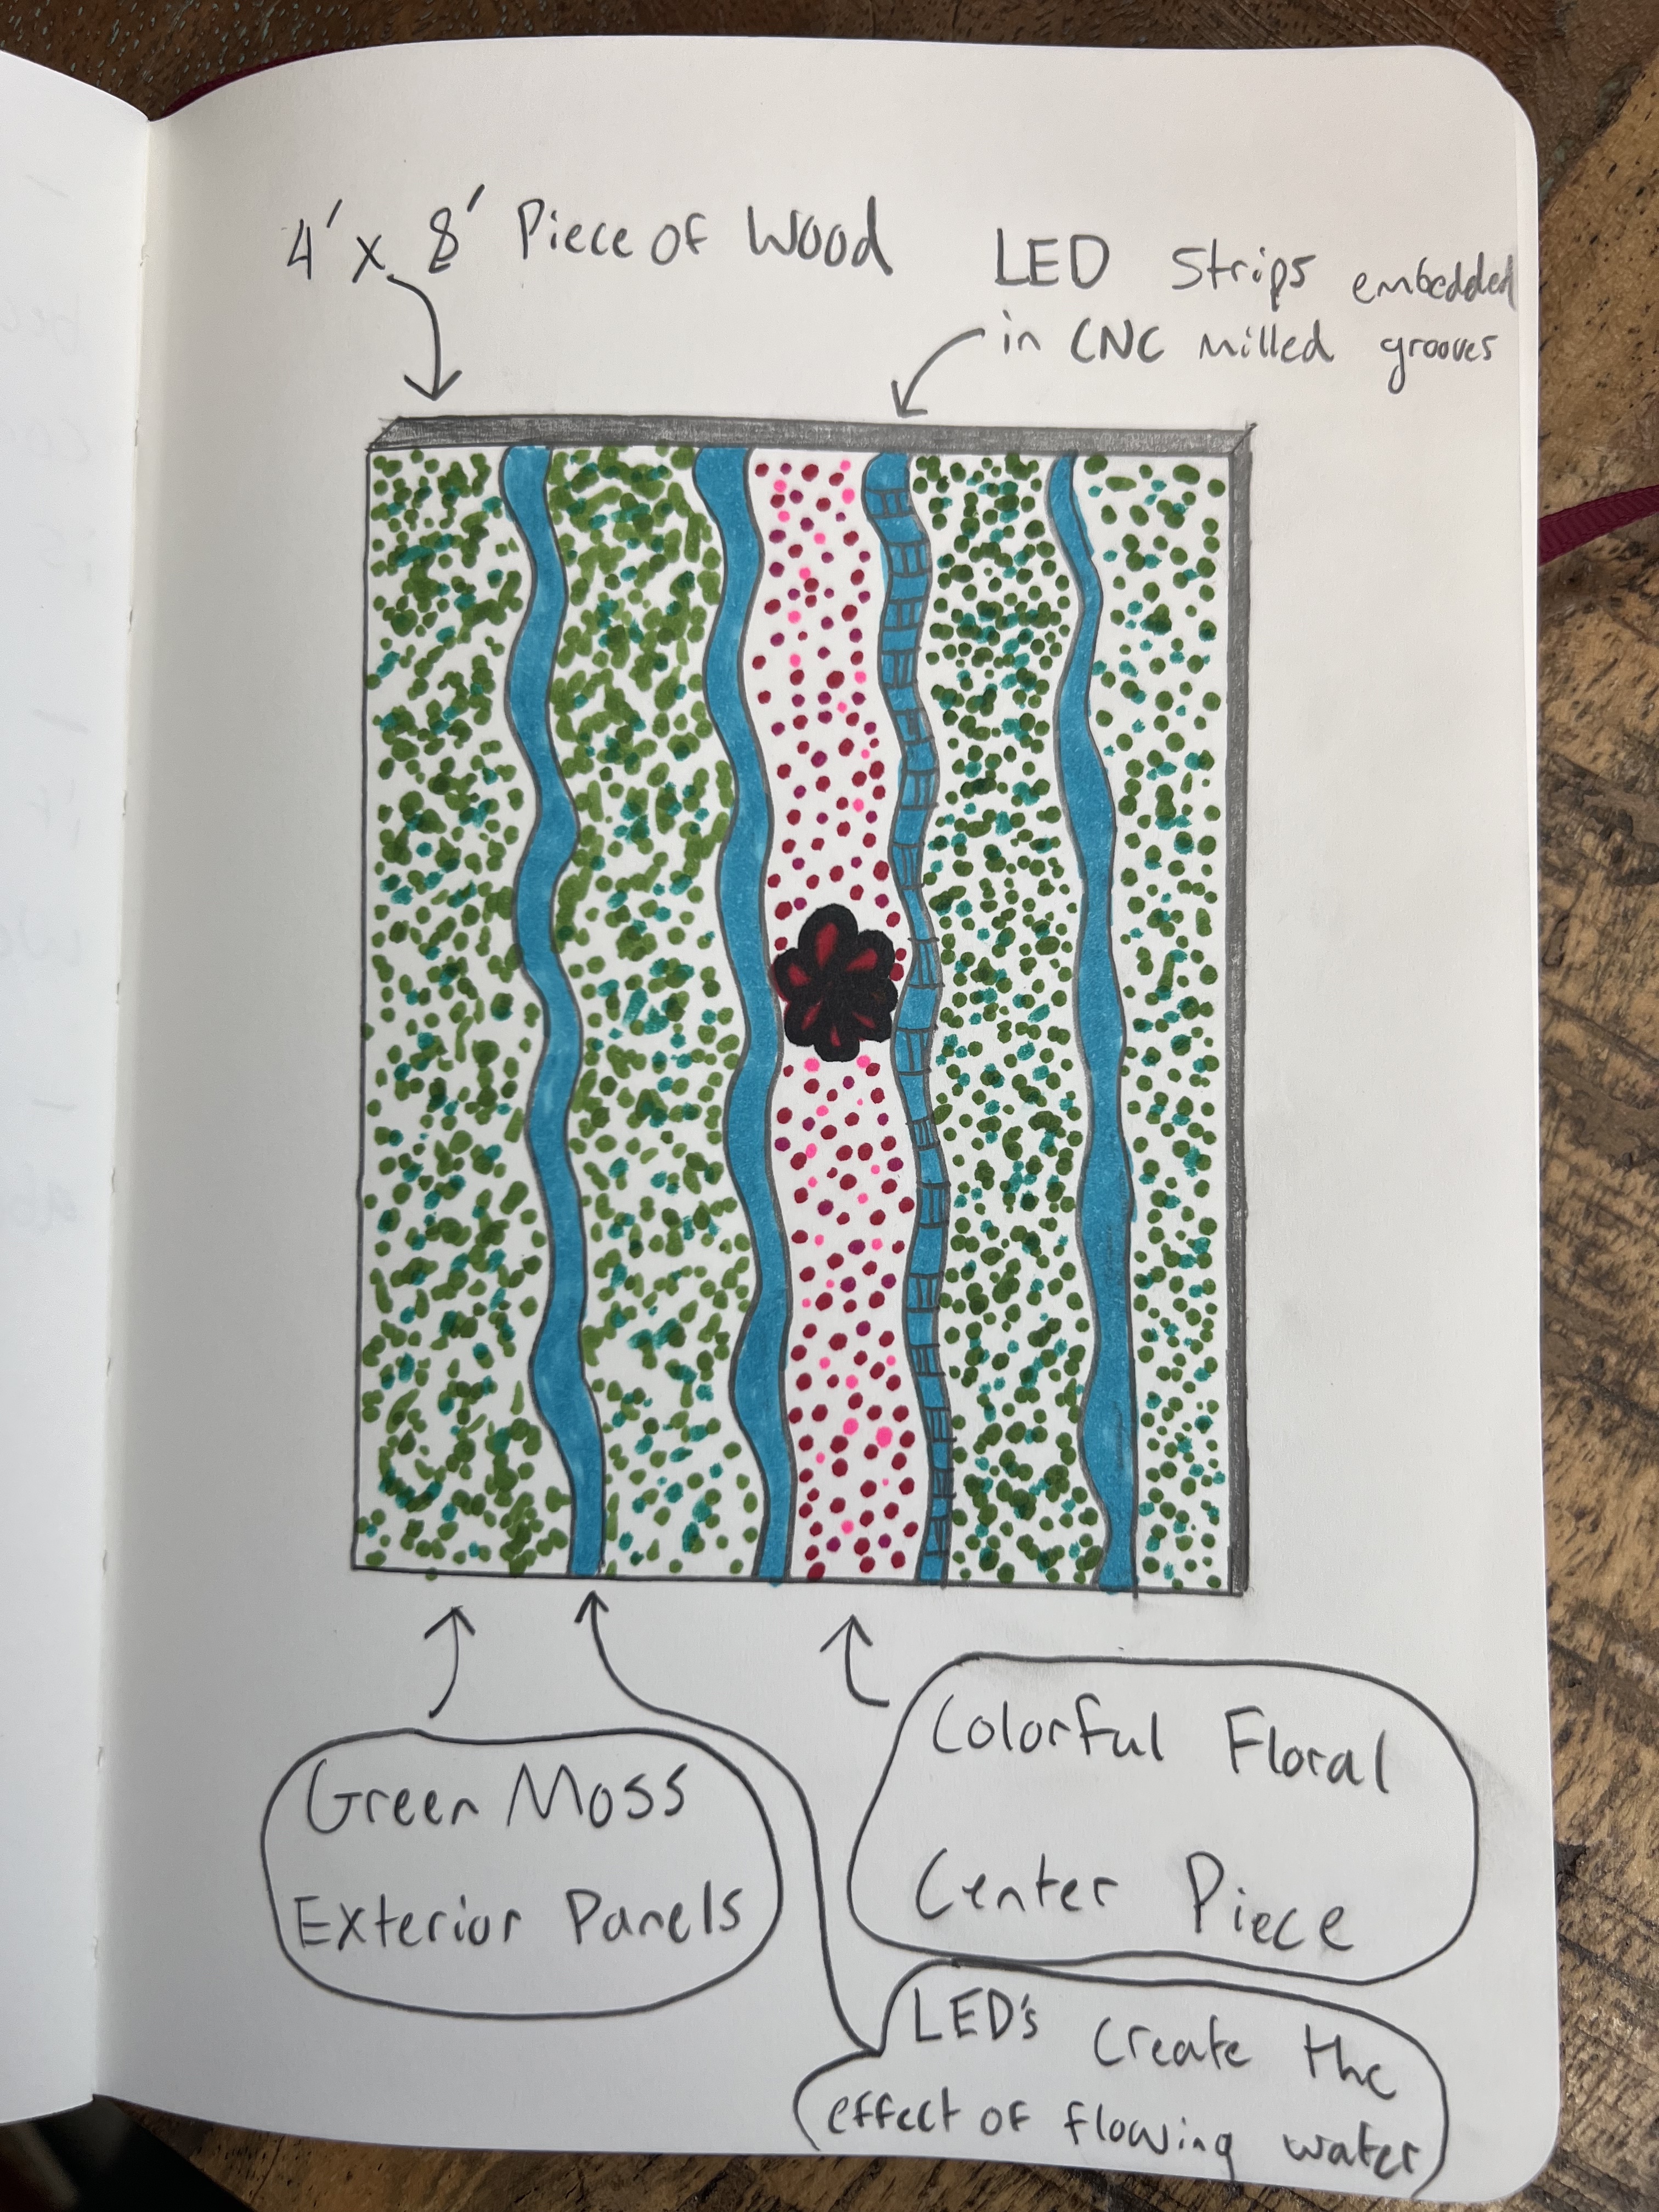 4' x 8' Piece of Wood
LED Strips embedded
in CNC milled grooves
Green Moss
Exterior Panels
Colorful Floral
Center Piece
LED's create the
effect of flowing water